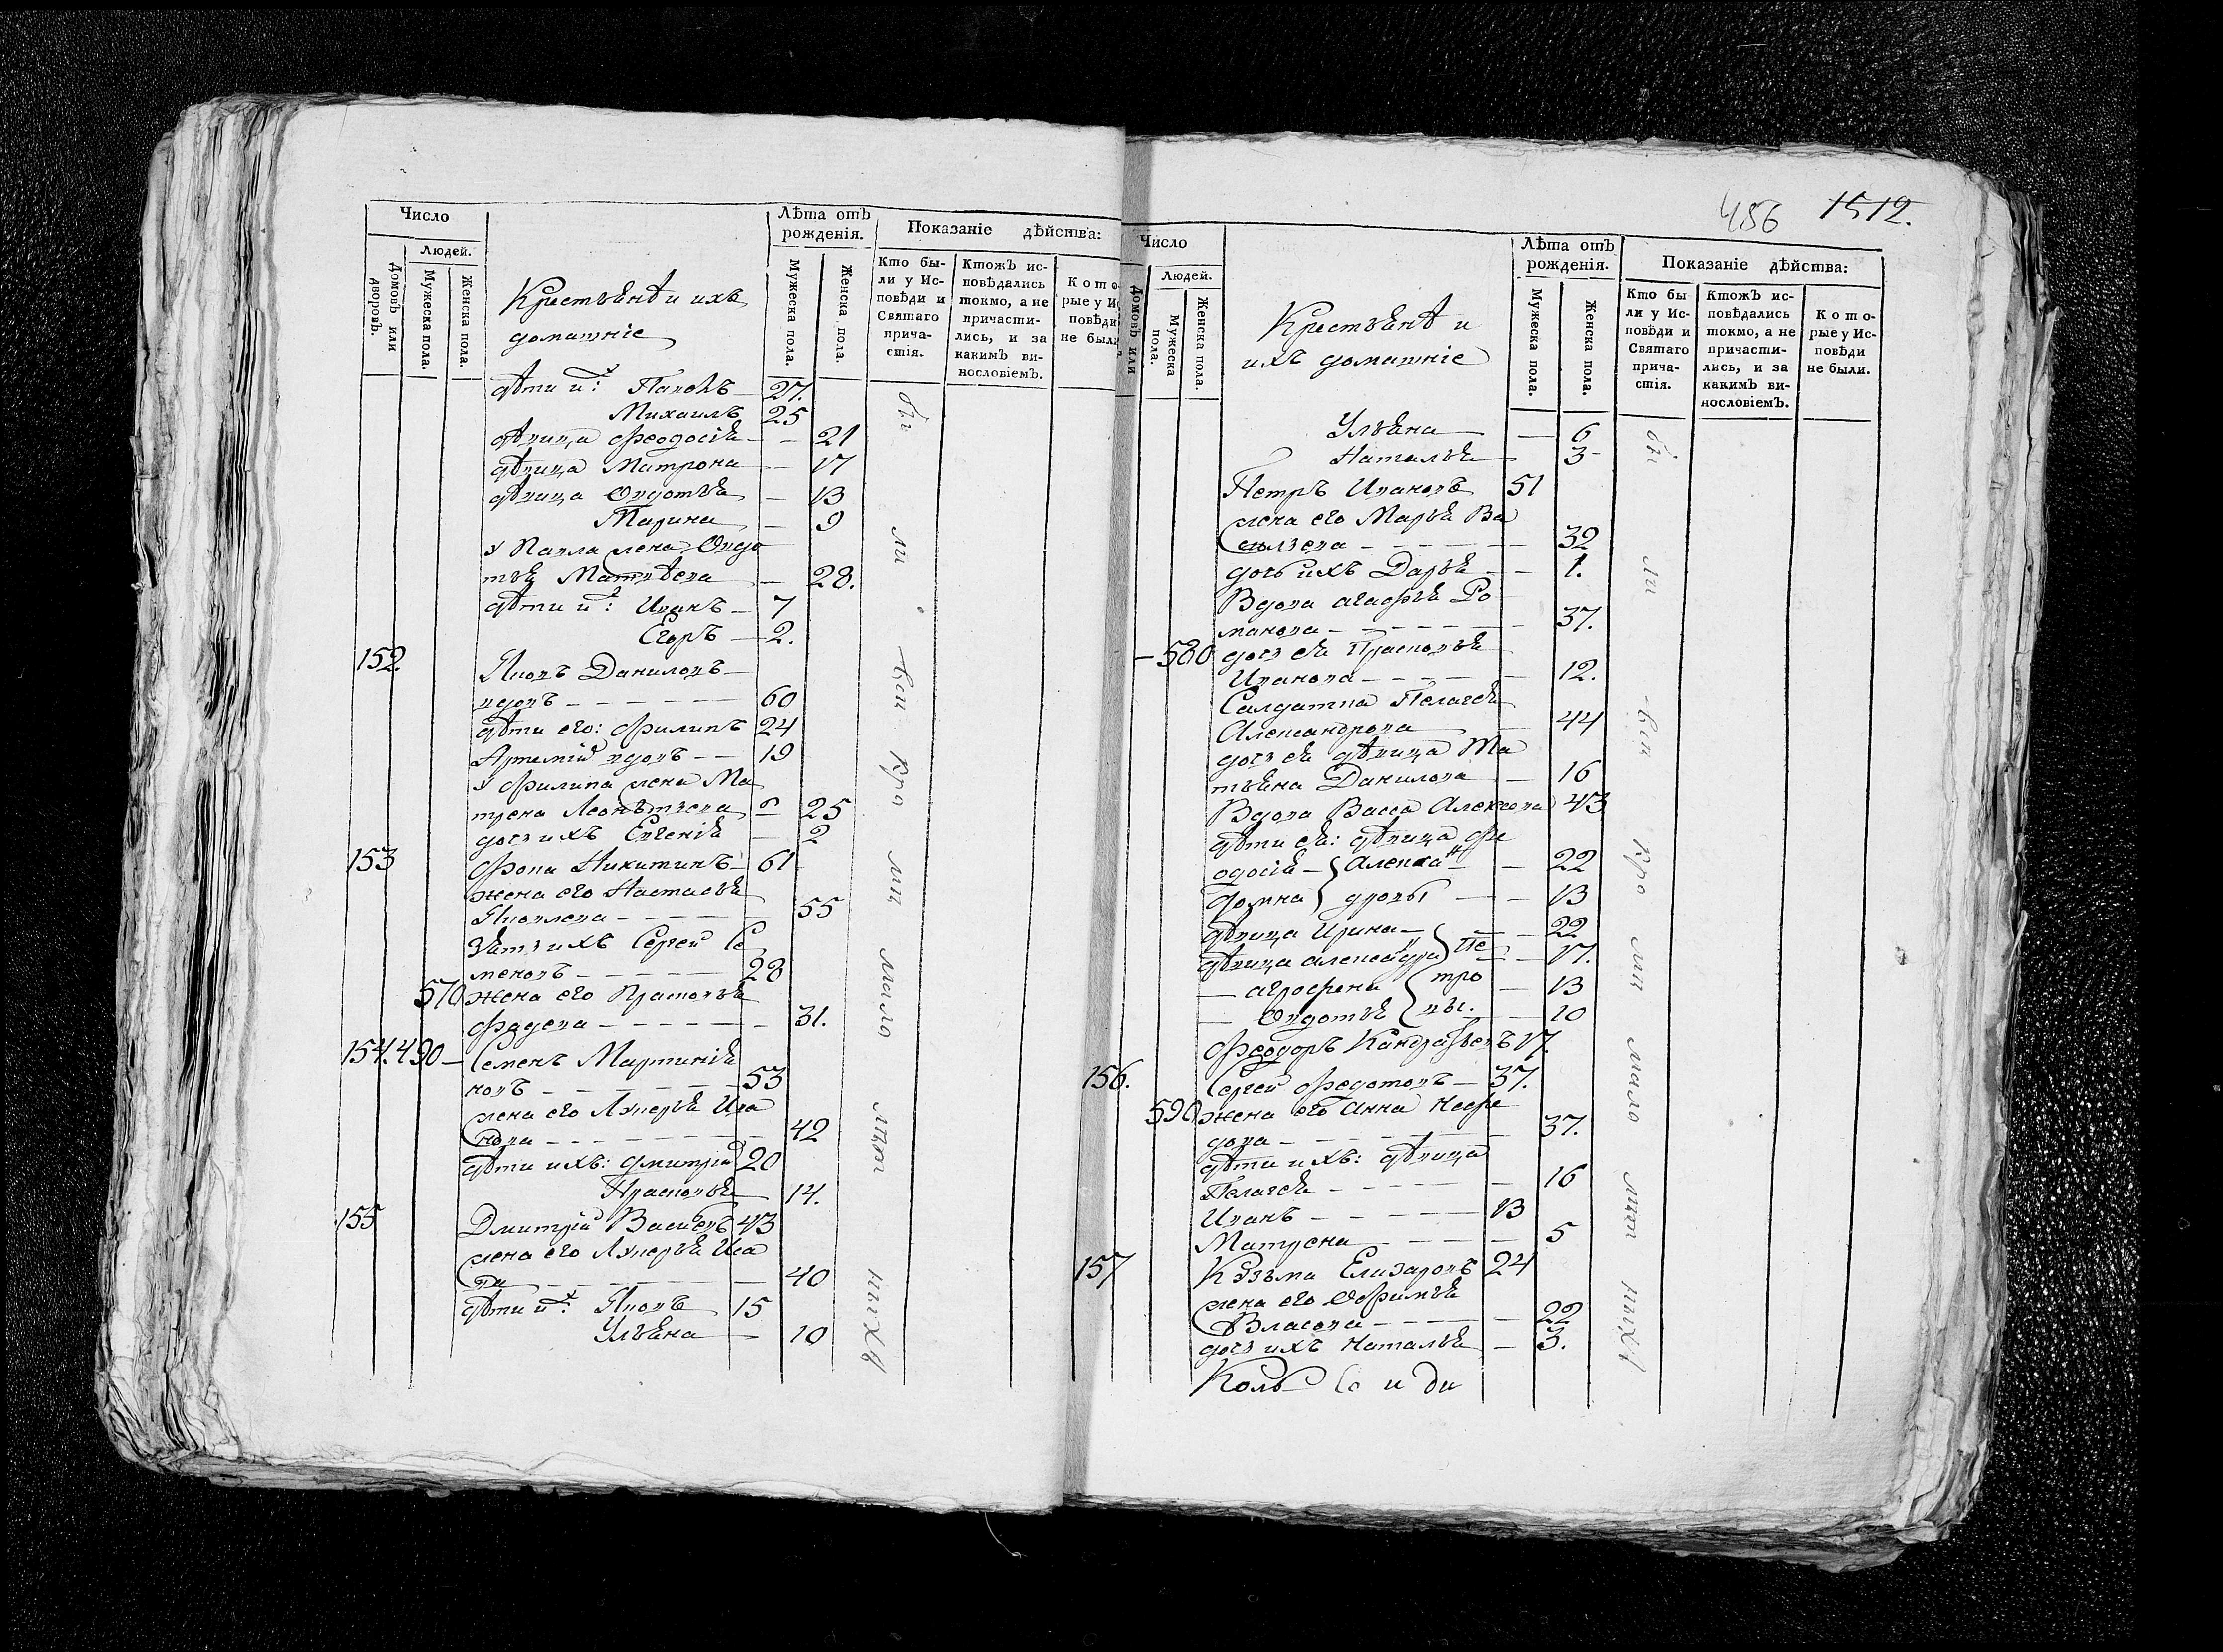 Число
Людей.
Домовъ или дворовъ.
Мужеска пола.
Женска пола.
Лѣта отъ рожденія.
Мужеска пола.
Женска пола.
Показаніе дѣйства:
Кто бы-
ли у Ис-
повѣди и
Святаго
прича-
стія.
Ктожъ ис-
повѣдались
токмо, а не
причасти-
лись, и за
какимъ ви-
нословіемъ.
Кото
рые у И
повѣди
не были
Крестьянѣ и ихъ
домашніе
дѣти их: Павелъ 27.
Михаилъ 25
дѣвица Феодосія 21
дѣвица Матрона 17
дѣвица Овдотья 13
Марина 9
у Павла жена Овдо
тья Матвѣева 28.
дѣти их: Иванъ 7
Егоръ 2.
152. Яковъ Даниловъ
вдовъ 60
дѣти его: Филипъ 24
Артемій вдовъ 19
у Филипа жена Ма
трена Леонтьева 25
дочь ихъ Евгенія 2
153 Фока Никитинъ 61
жена его Настасья
Яковлева 55
Зять ихъ Сергей Се
меновъ 28
570 жена его Прасковья
Фадеева 31.
154. 490 Семенъ Мартинія
новъ 53
жена его Лукерья Ива
нова 42
дѣти ихъ: Дмитрій 20
Прасковья 14.
155 Дмитрій Васильевъ 43
жена его Лукерья Иса
ва 40
дѣти их: Яковъ 15
Ульяна 10
бы
ли
вси
кро
мѣ
мало
лѣт
ныхъ
456 1512.
Число
Людей.
Домовъ или
Мужеска пола.
Женска пола.
Лѣта отъ рожденія.
Мужеска пола.
Женска пола.
Показаніе дѣйства:
Кто бы
ли у Ис-
повѣди и
Святаго
прича-
стія.
Ктожъ ис-
повѣдались
токмо, а не
причасти-
лись, и за
какимъ ви-
нословіемъ.
Кото-
рые у Ис-
повѣди
не были.
Крестьянѣ и
ихъ домашніе
Ульяна 6
Наталья 3
Петръ Ивановъ 51
жена его Марья Ва
сильева 32
дочь ихъ Дарья 1.
Вдова Агафья Ро
манова 37.
580 дочь ея Прасковья
Иванова 12.
Салдатка Пелагея
Александрова 44
дочь ея дѣвица Та
тьяна Данилова 16
Вдова Васса Алексеева 43
дѣти ея: дѣвица Фе
одосія Алексан 22
Домна дровы 13
дѣвица Ирина 22
дѣвица Александра Пе 17.
Агрофена тро 13
Овдотья вы. 10
Феодоръ Кандратьевъ 17.
156. Сергей Федотовъ 37.
590 жена его Анна Нефе
дова 37.
дѣти ихъ: дѣвица
Пелагея 16
Иванъ 13
Матрена 5
157 Козьма Елизаровъ 24
жена его Офимья
Власова 22
дочь ихъ Наталья 3.
Коль Со и ди
бы
ли
вси
кро
мѣ
мало
лѣт
ныхъ